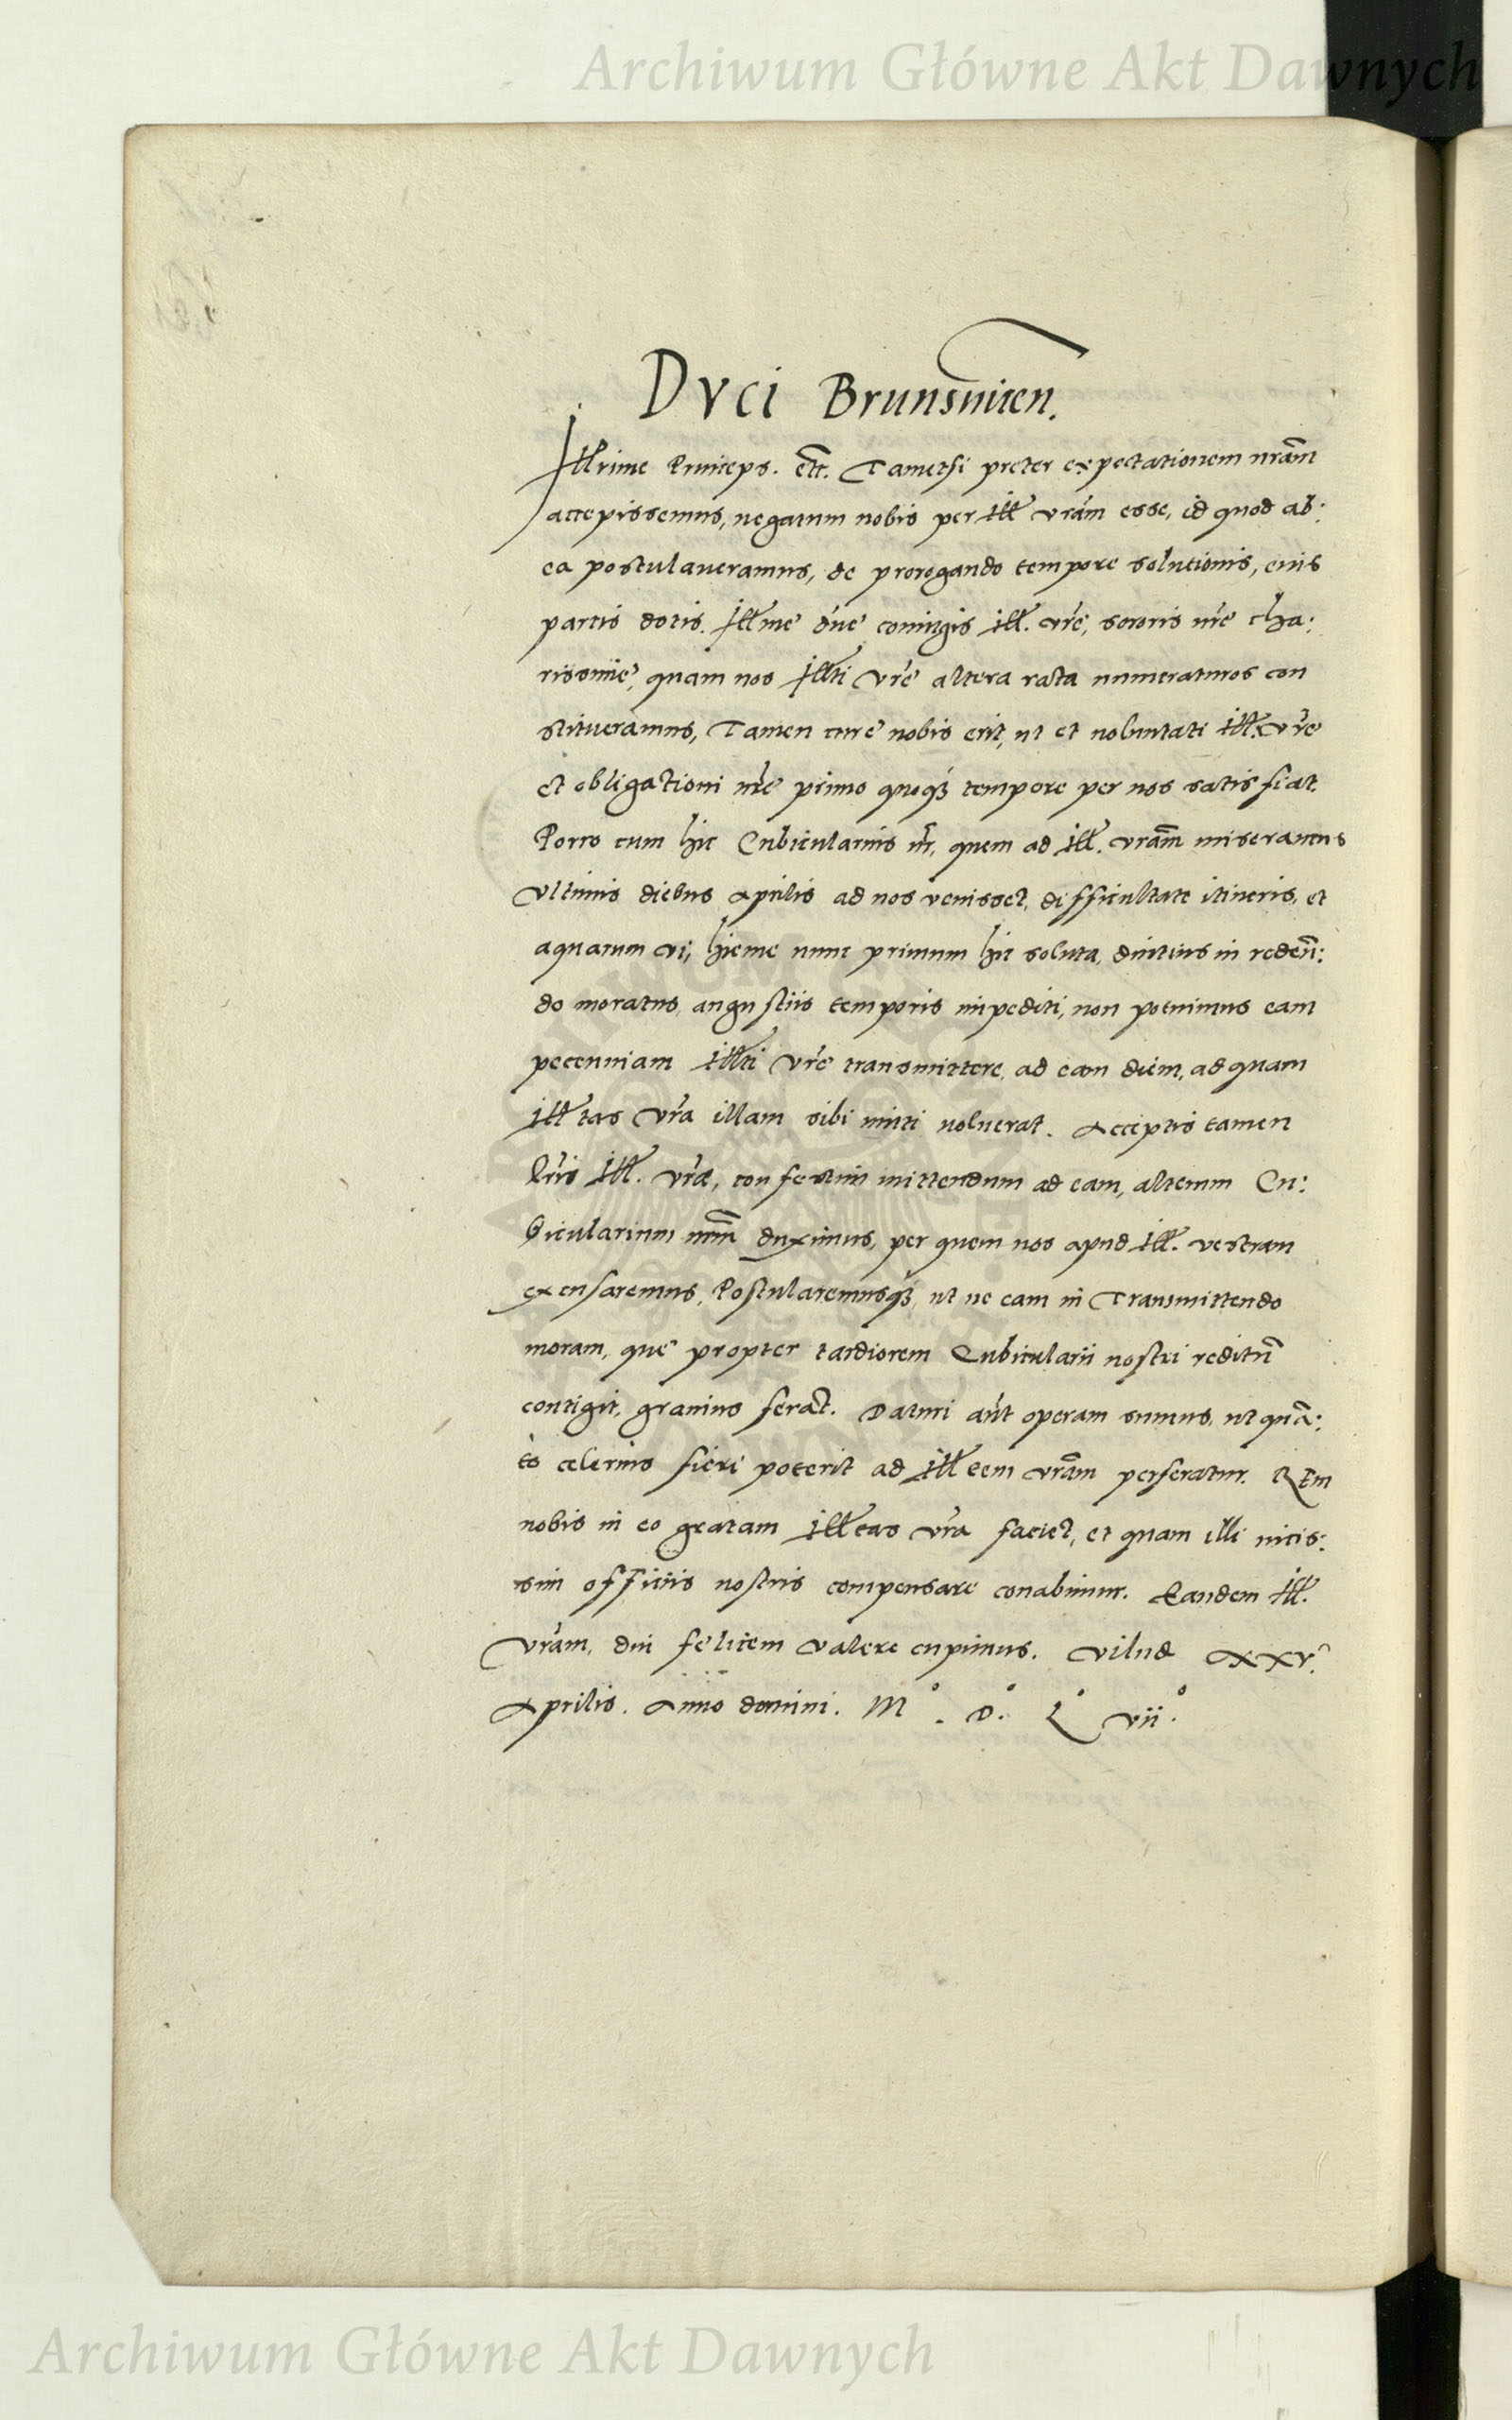 Archiwum Główne Akt Dawnych
Dvci Brunsuicen.
Illrime Princeps. etc. Tametsi preter expectationem nrãm
accepissemus, negatum nobis per Ill vrãm esse, id quod ab:
ea postulaueramus, de prorogando tempore solutionis, eius
partis dotis. Illme dne coniugis Ill. vre, sororis nre cha:
rissime, quam nos Illti vre altera rata numeraturos con
stitueramus, Tamen cure nobis erit, ut et uoluntati Ill. vre
et obligationi nre primo quoq3 tempore per nos satisfiat.
Porro cum hic Cubicularius nr, quem ad Ill. vrãm miseramus
vltimis diebus Aprilis ad nos venisset, difficultate itineris, et
aquarum vi, hieme nunc primum hic soluta, diutius in redeũ:
do moratus, angustiis temporis impediti, non potuimus eam
pecuniam Illti vre transmittere, ad eam diem, ad quam
Ill tas vra illam sibi mitti uoluerat. Acceptis tamen
lris Ill. vræ, confestim mittendum ad eam, alterum Cu:
bicularium nrm duximus, per quem nos apud Ill. vestram
excusaremus, Postularemusq3, ut ne eam in Transmittendo
moram, que propter tardiorem Cubicularii nostri reditũ
contigit, grauius ferat. Daturi aut operam sumus, ut quã:
to celerius fieri poterit ad Ill tem vrãm perferatur. Rem
nobis in eo gratam Ill tas vra faciet, et quam illi uicis:
sim officiis nostris compensare conabimur. Eandem Ill.
vram, diu felicem valere cupimus. Vilnæ XXV.
Aprilis. Anno domini. M°. D.° L° vii.°
Archiwum Główne Akt Dawnych